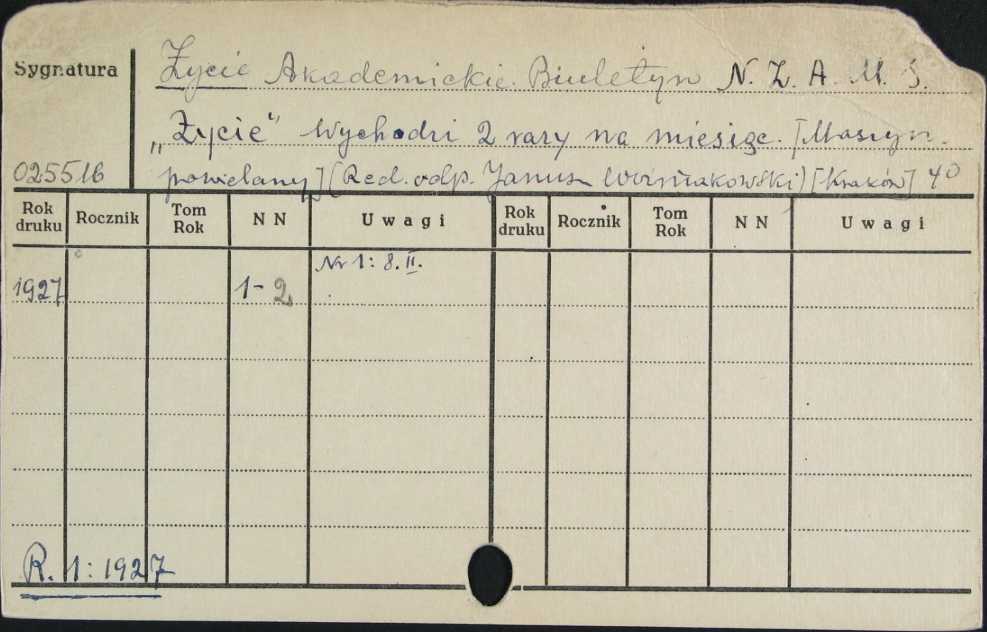 Sygnatura
Życie Akademickie. Biuletyn N. Z. A. M. S.
„Życie" Wychodzi 2 razy na miesiąc. [Maszyn.
025516 powielany] (Red. odp. Janusz Woźniakowski) [Kraków] 4⁰
Rok druku Rocznik Tom Rok N N Uwagi Rok druku Rocznik Tom Rok N N Uwagi
Nr 1: 8. II.
1927 1-2
R. 1: 1927